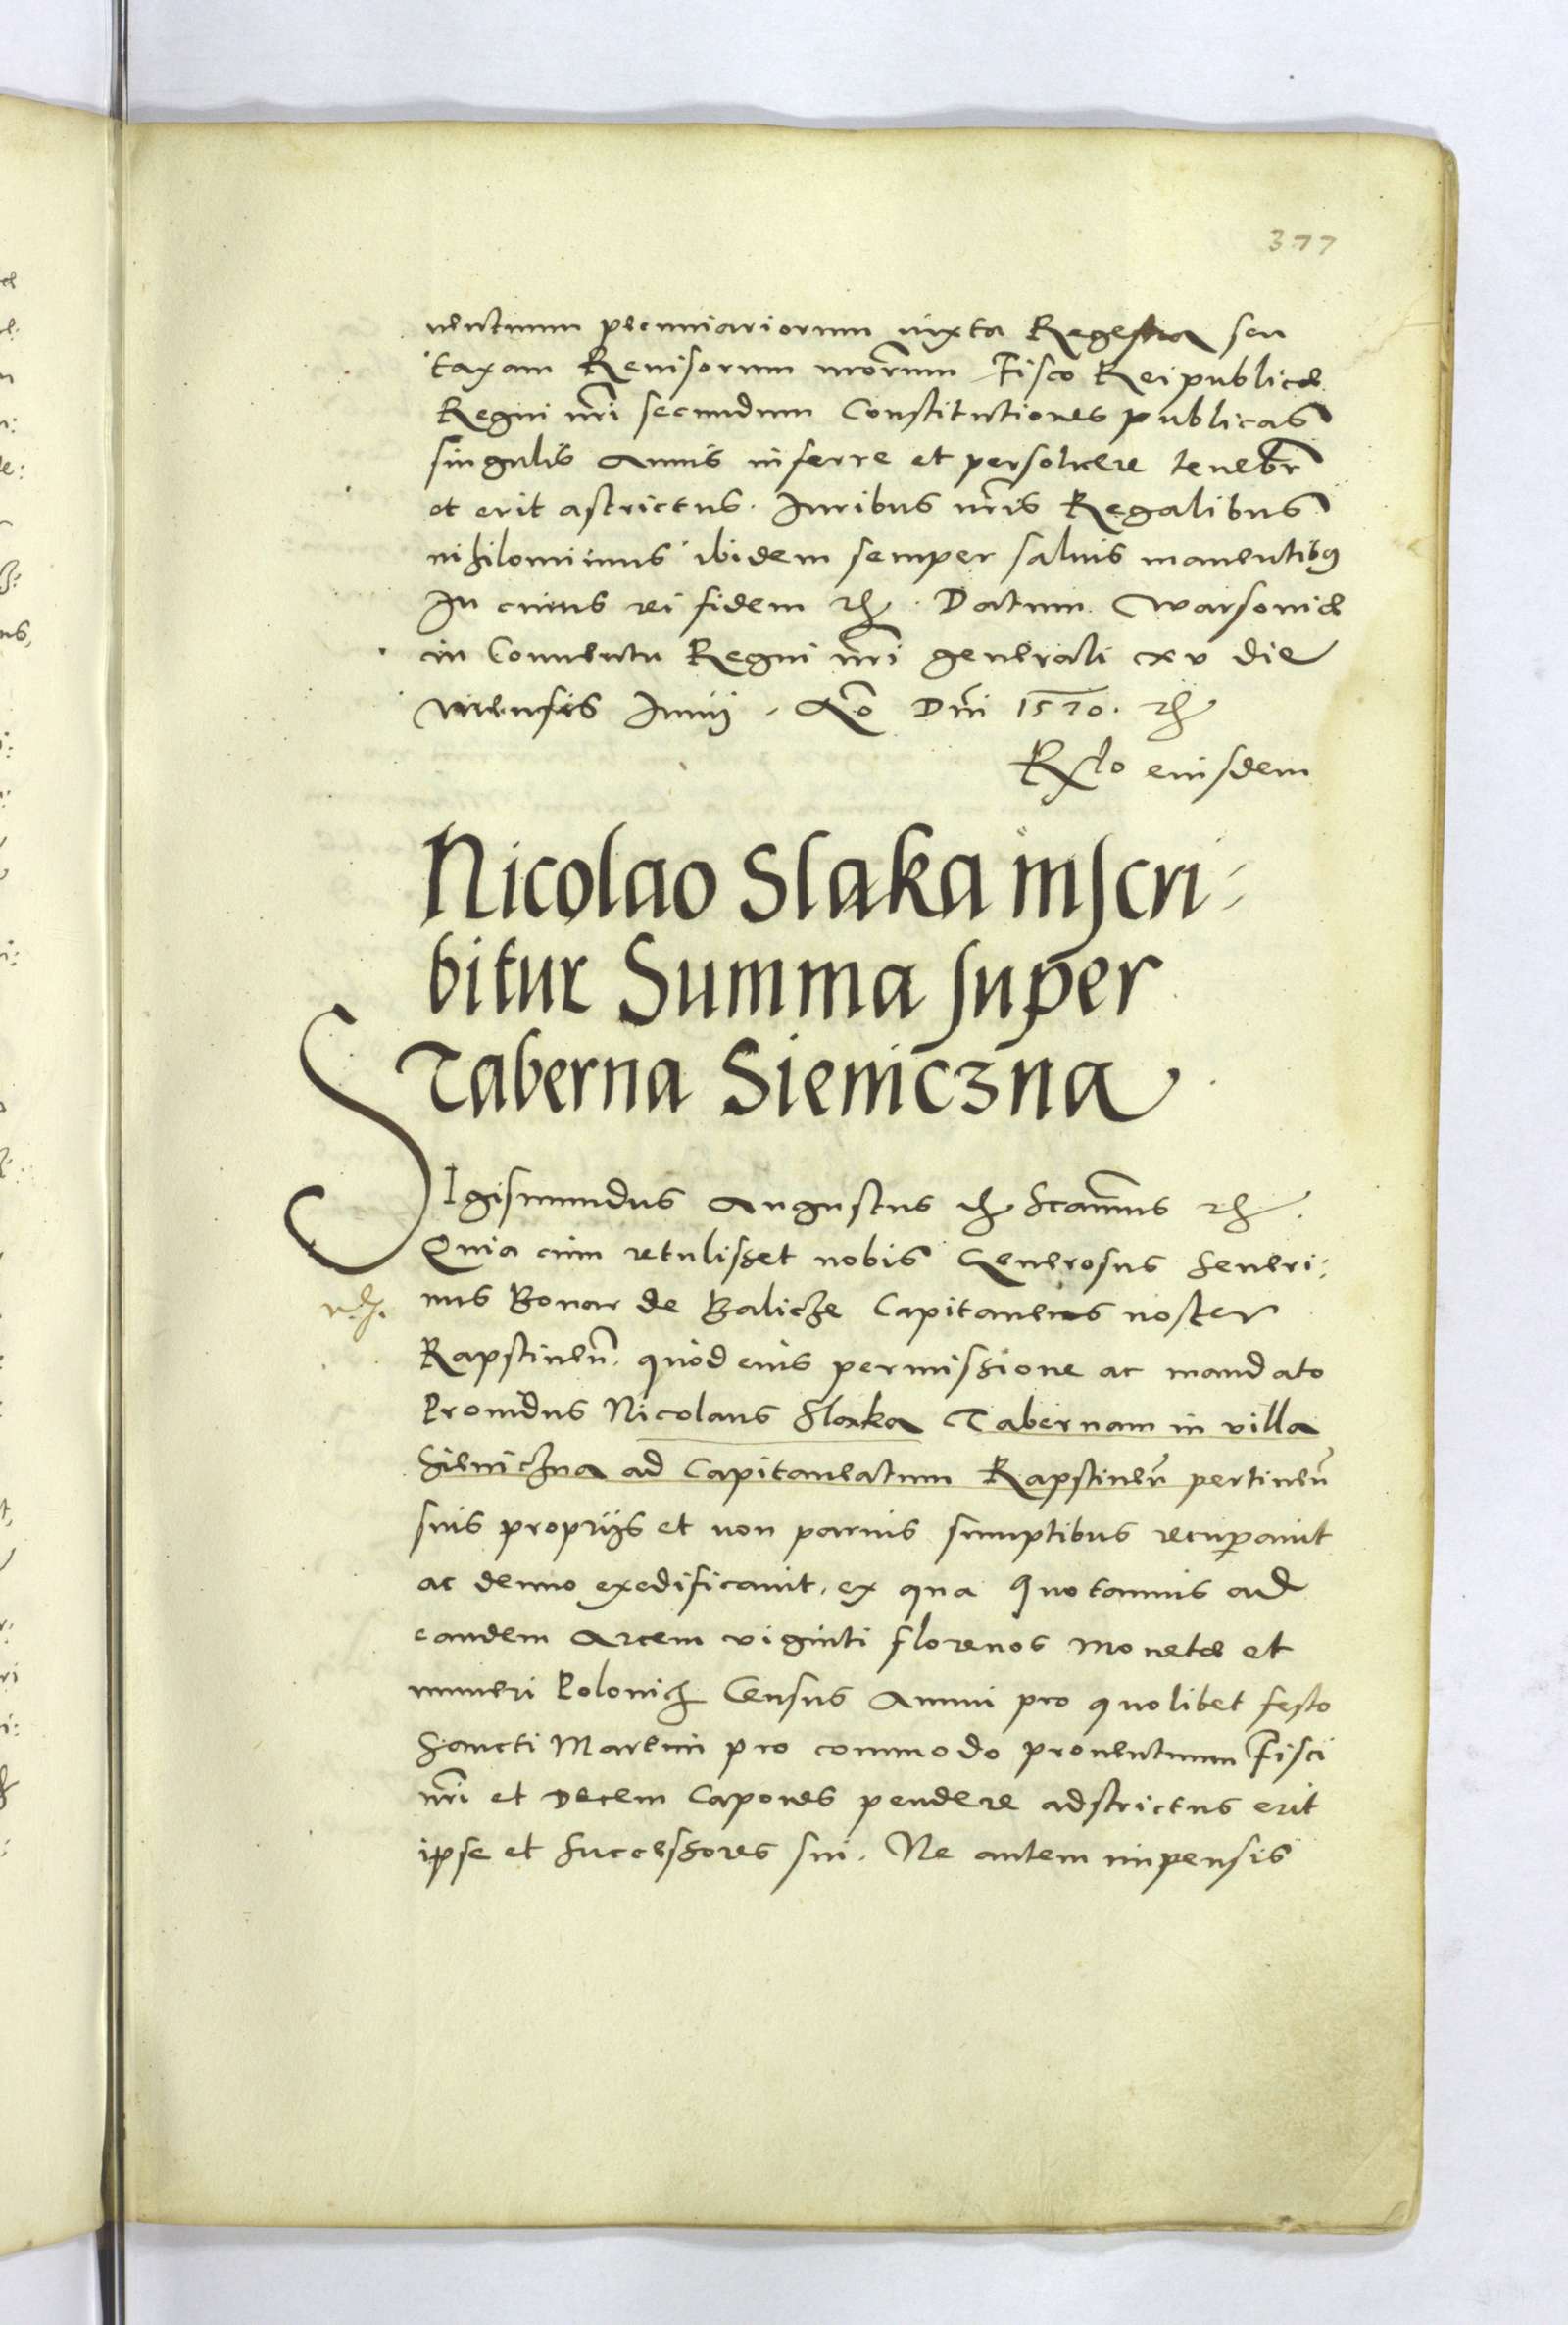 377
uentuum pecuniariorum iuxta Regestra seu
taxam Reuisorum nrorum Fisco Reipublicæ
Regni nri secundum Constitutiones publicas
singulis Annis inferre et persoluere tenebr
et erit astrictus. Iuribus nris Regalibus
nihilominus ibidem semper saluis manentibus
In cuius rei fidem etc. Datum Warsouiæ
in Conuentu Regni nri generali xv die
mensis Iunij. Ao Dni 1570. etc
Rlo eiusdem
Nicolao Slaka inscri-
bitur Summa super
Taberna Sieniczna
SIgismundus Augustus etc Scamus etc.
Quia cum retulisset nobis Generosus Seueri:
nus Bonar de Balicze Capitaneus noster
Rapstinen. quod eius permissione ac mandato
Prouidus Nicolaus Slaka Tabernam in villa
Sieniczna ad Capitaneatum Rapstinen pertinen
suis proprijs et non paruis sumptibus recuperauit
ac denuo exedificauit, ex qua quotannis ad
eandem Arcem viginti florenos Monetæ et
numeri Polonici Census Annui pro quolibet festo
Sancti Martini pro commodo prouentuum Fisci
nri et Decem Capones pendere adstrictus erit
ipse et Successores sui. Ne autem impensis